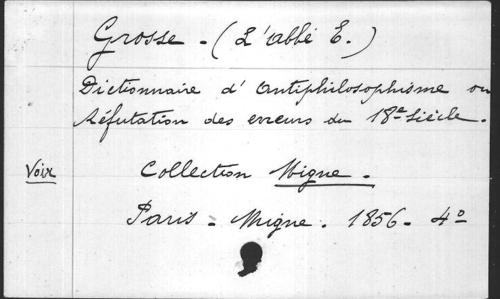 Grosse - (L'abbé E.)
Dictionnaire d' Antiphilosophisme ou
Réfutation des erreurs du 18e Siècle.
Voir Collection Migne.
Paris - Migne. 1856 - 4o